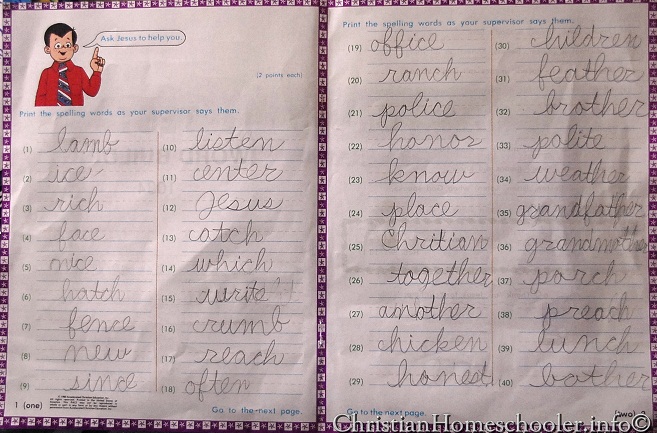 Ask Jesus to help you.
(2 points each)
Print the spelling words as your supervisor says them.
(1) lamb
(2) ice
(3) rich
(4) face
(5) nice
(6) hatch
(7) fence
(8) new
(9) since
(10) listen
(11) center
(12) Jesus
(13) catch
(14) which
(15) write
(16) crumb
(17) reach
(18) often
1 (one)
Go to the next page.
Print the spelling words as your supervisor says them.
(19) office
(20) ranch
(21) police
(22) honor
(23) know
(24) place
(25) Chritian
(26) together
(27) another
(28) chicken
(29) honest
(30) children
(31) feather
(32) brother
(33) polite
(34) weather
(35) grandfather
(36) grandmother
(37) porch
(38) preach
(39) lunch
(40) bother
Go to the next page.
(two) 2
©ChristianHomeschooler.info©